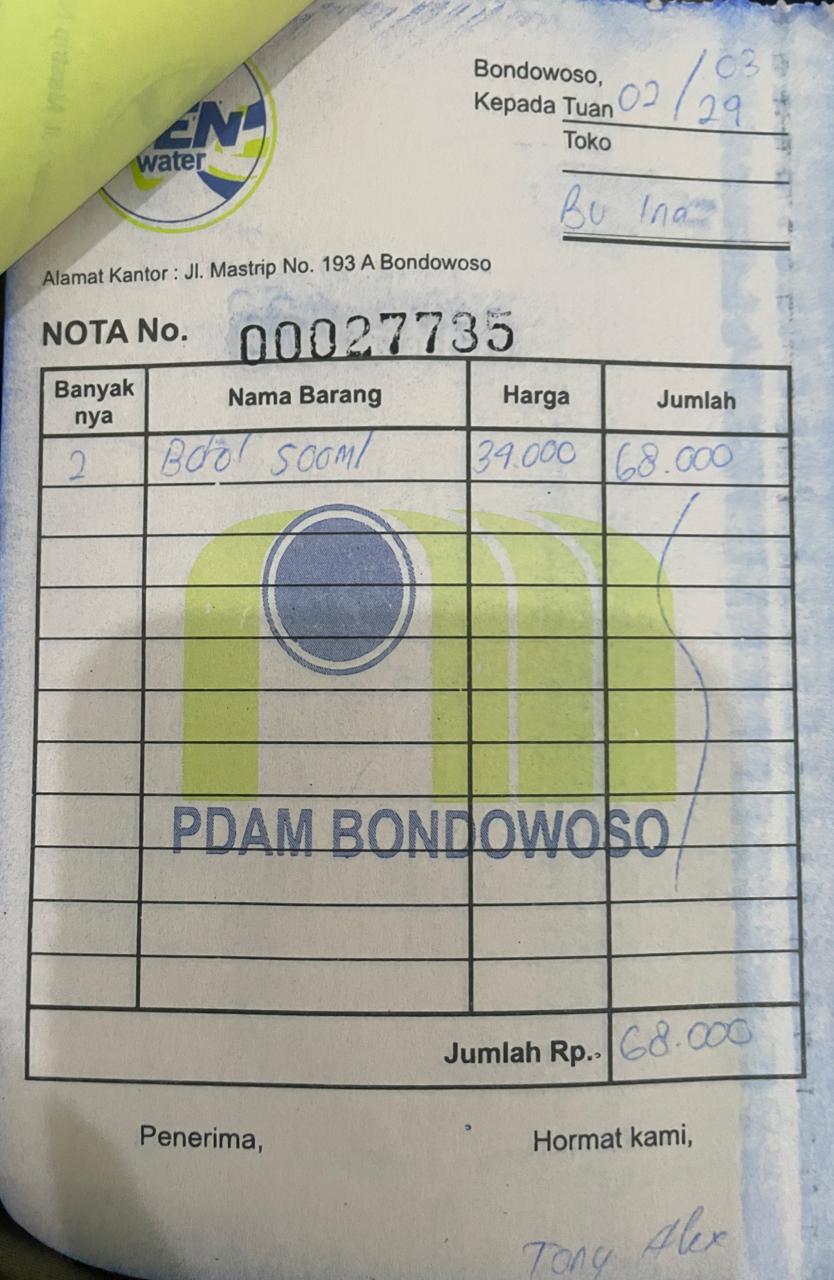 EN
water
Bondowoso, 03
Kepada Tuan 02 / 29
Toko
Bu Ina
Alamat Kantor : Jl. Mastrip No. 193 A Bondowoso
NOTA No. 00027735
Banyak nya Nama Barang Harga Jumlah
2 Botol 500ml 34.000 68.000
PDAM BONDOWOSO
Jumlah Rp. 68.000
Penerima, Hormat kami,
Tony Alex